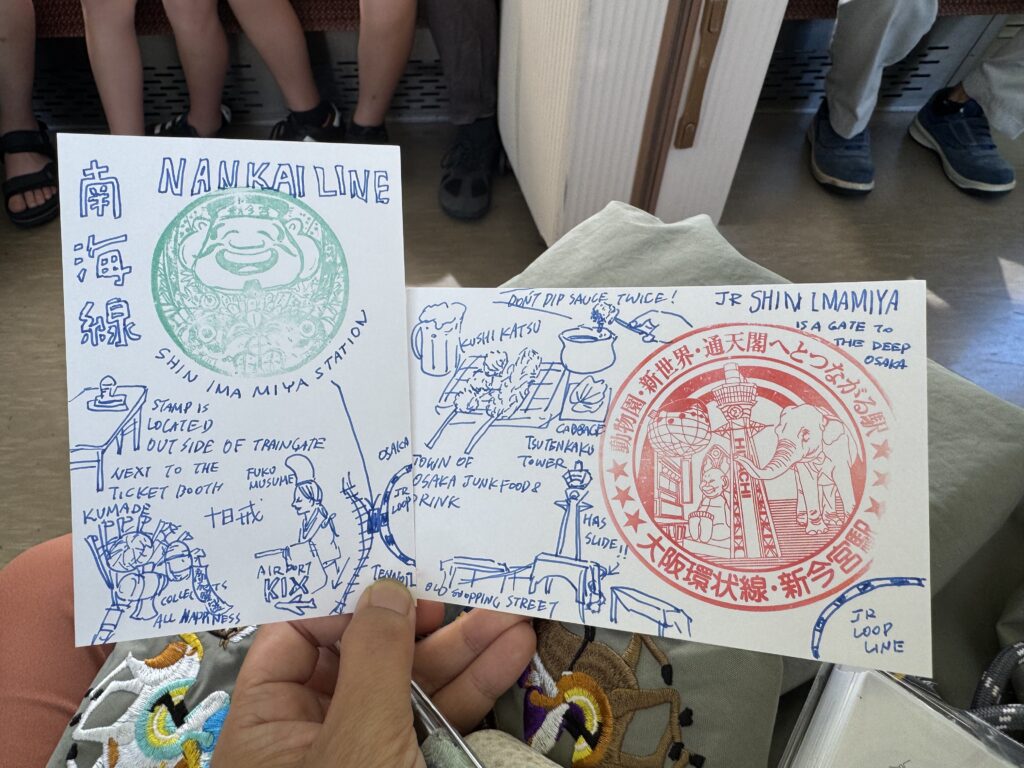 南海線
NANKAI LINE
SHIN IMA MIYA STATION
STAMP IS
LOCATED
OUT SIDE OF TRAINGATE
NEXT TO THE
TICKET BOOTH
KUMADE
FUKU
MUSUME
AIRPORT
KIX
COLLECTS
ALL HAPPINESS
OSAKA
JR
LOOP
DON'T DIP SAUCE TWICE!
KUSHI KATSU
CABBAGE
TOWN OF
OSAKA JUNK FOOD &
DRINK
TSUTENKAKU
TOWER
HAS
SLIDE!!
OLD SHOPPING STREET
JR SHIN IMAMIYA
IS A GATE TO
THE DEEP
OSAKA
動物園・新世界・通天閣へとつながる駅
HITACHI
大阪環状線・新今宮駅
JR
LOOP
LINE